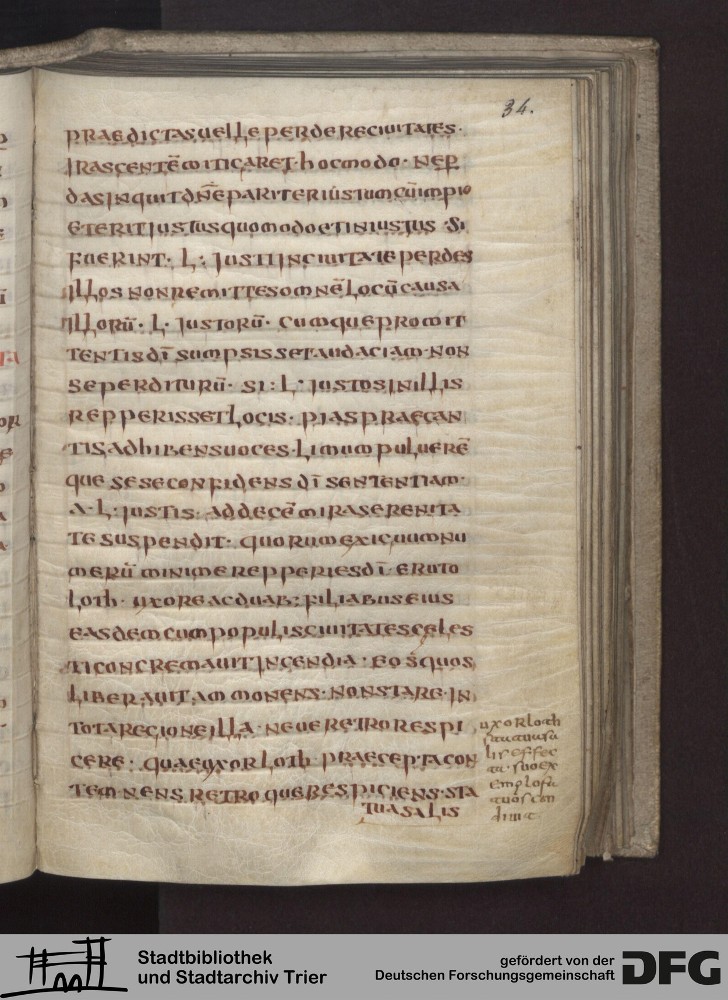 34.
PRAEDICTAS UELLE PERDERE CIUITATES·
IRASCENTĒ MITIGARET· HOC MODO· NEP
DAS INQUIT DN̄E PARITER IUSTUM CŪ IMPIO
ET ERIT IUSTUS QUOMODO ET INIUSTUS· SI
FUERINT· L· IUSTI IN CIUITATE PERDES
ILLOS NON REMITTES OMNĒ LOCŪ CAUSA
ILLORŪ· L· IUSTORŪ· CUMQUE PROMIT
TENTIS DĪ SUMPSISSET AUDACIAM· NON
SE PERDITURŪ· SI· L· IUSTOS IN ILLIS
REPPERISSET LOCIS· PIAS PRAECAN
TIS ADHIBENS UOCES· LIMUM PULUERĒ
QUE SESE CONFIDENS DĪ SENTENTIAM·
A· L· IUSTIS· AD DECĒ MIRA SERENITA
TE SUSPENDIT· QUORUM EXIGUUM NU
MERŪ MINIME REPPERIES DĪ· ERUTO
LOTH· UXORE AC DUAB; FILIABUS EIUS
EASDEM CUM POPULIS CIUITATES CELES
TI CONCREMAUIT INCENDIA· EOSQUOS
LIBERAUIT AMMONENS· NON STARE· IN
TOTA REGIONE ILLA· NEUE RETRO RESPI
CERE· QUAE UXOR LOTH PRAECEPTA CON
TEMNENS RETROQUE RESPICIENS· STA
TUA SALIS
uxor loth
statua sa
lis effec
ta· suo ex
emplo fa
tuos con
diuit
Stadtbibliothek
und Stadtarchiv Trier
gefördert von der
Deutschen Forschungsgemeinschaft
DFG